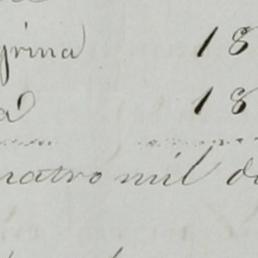 grina 18
a 18
uatro mil o